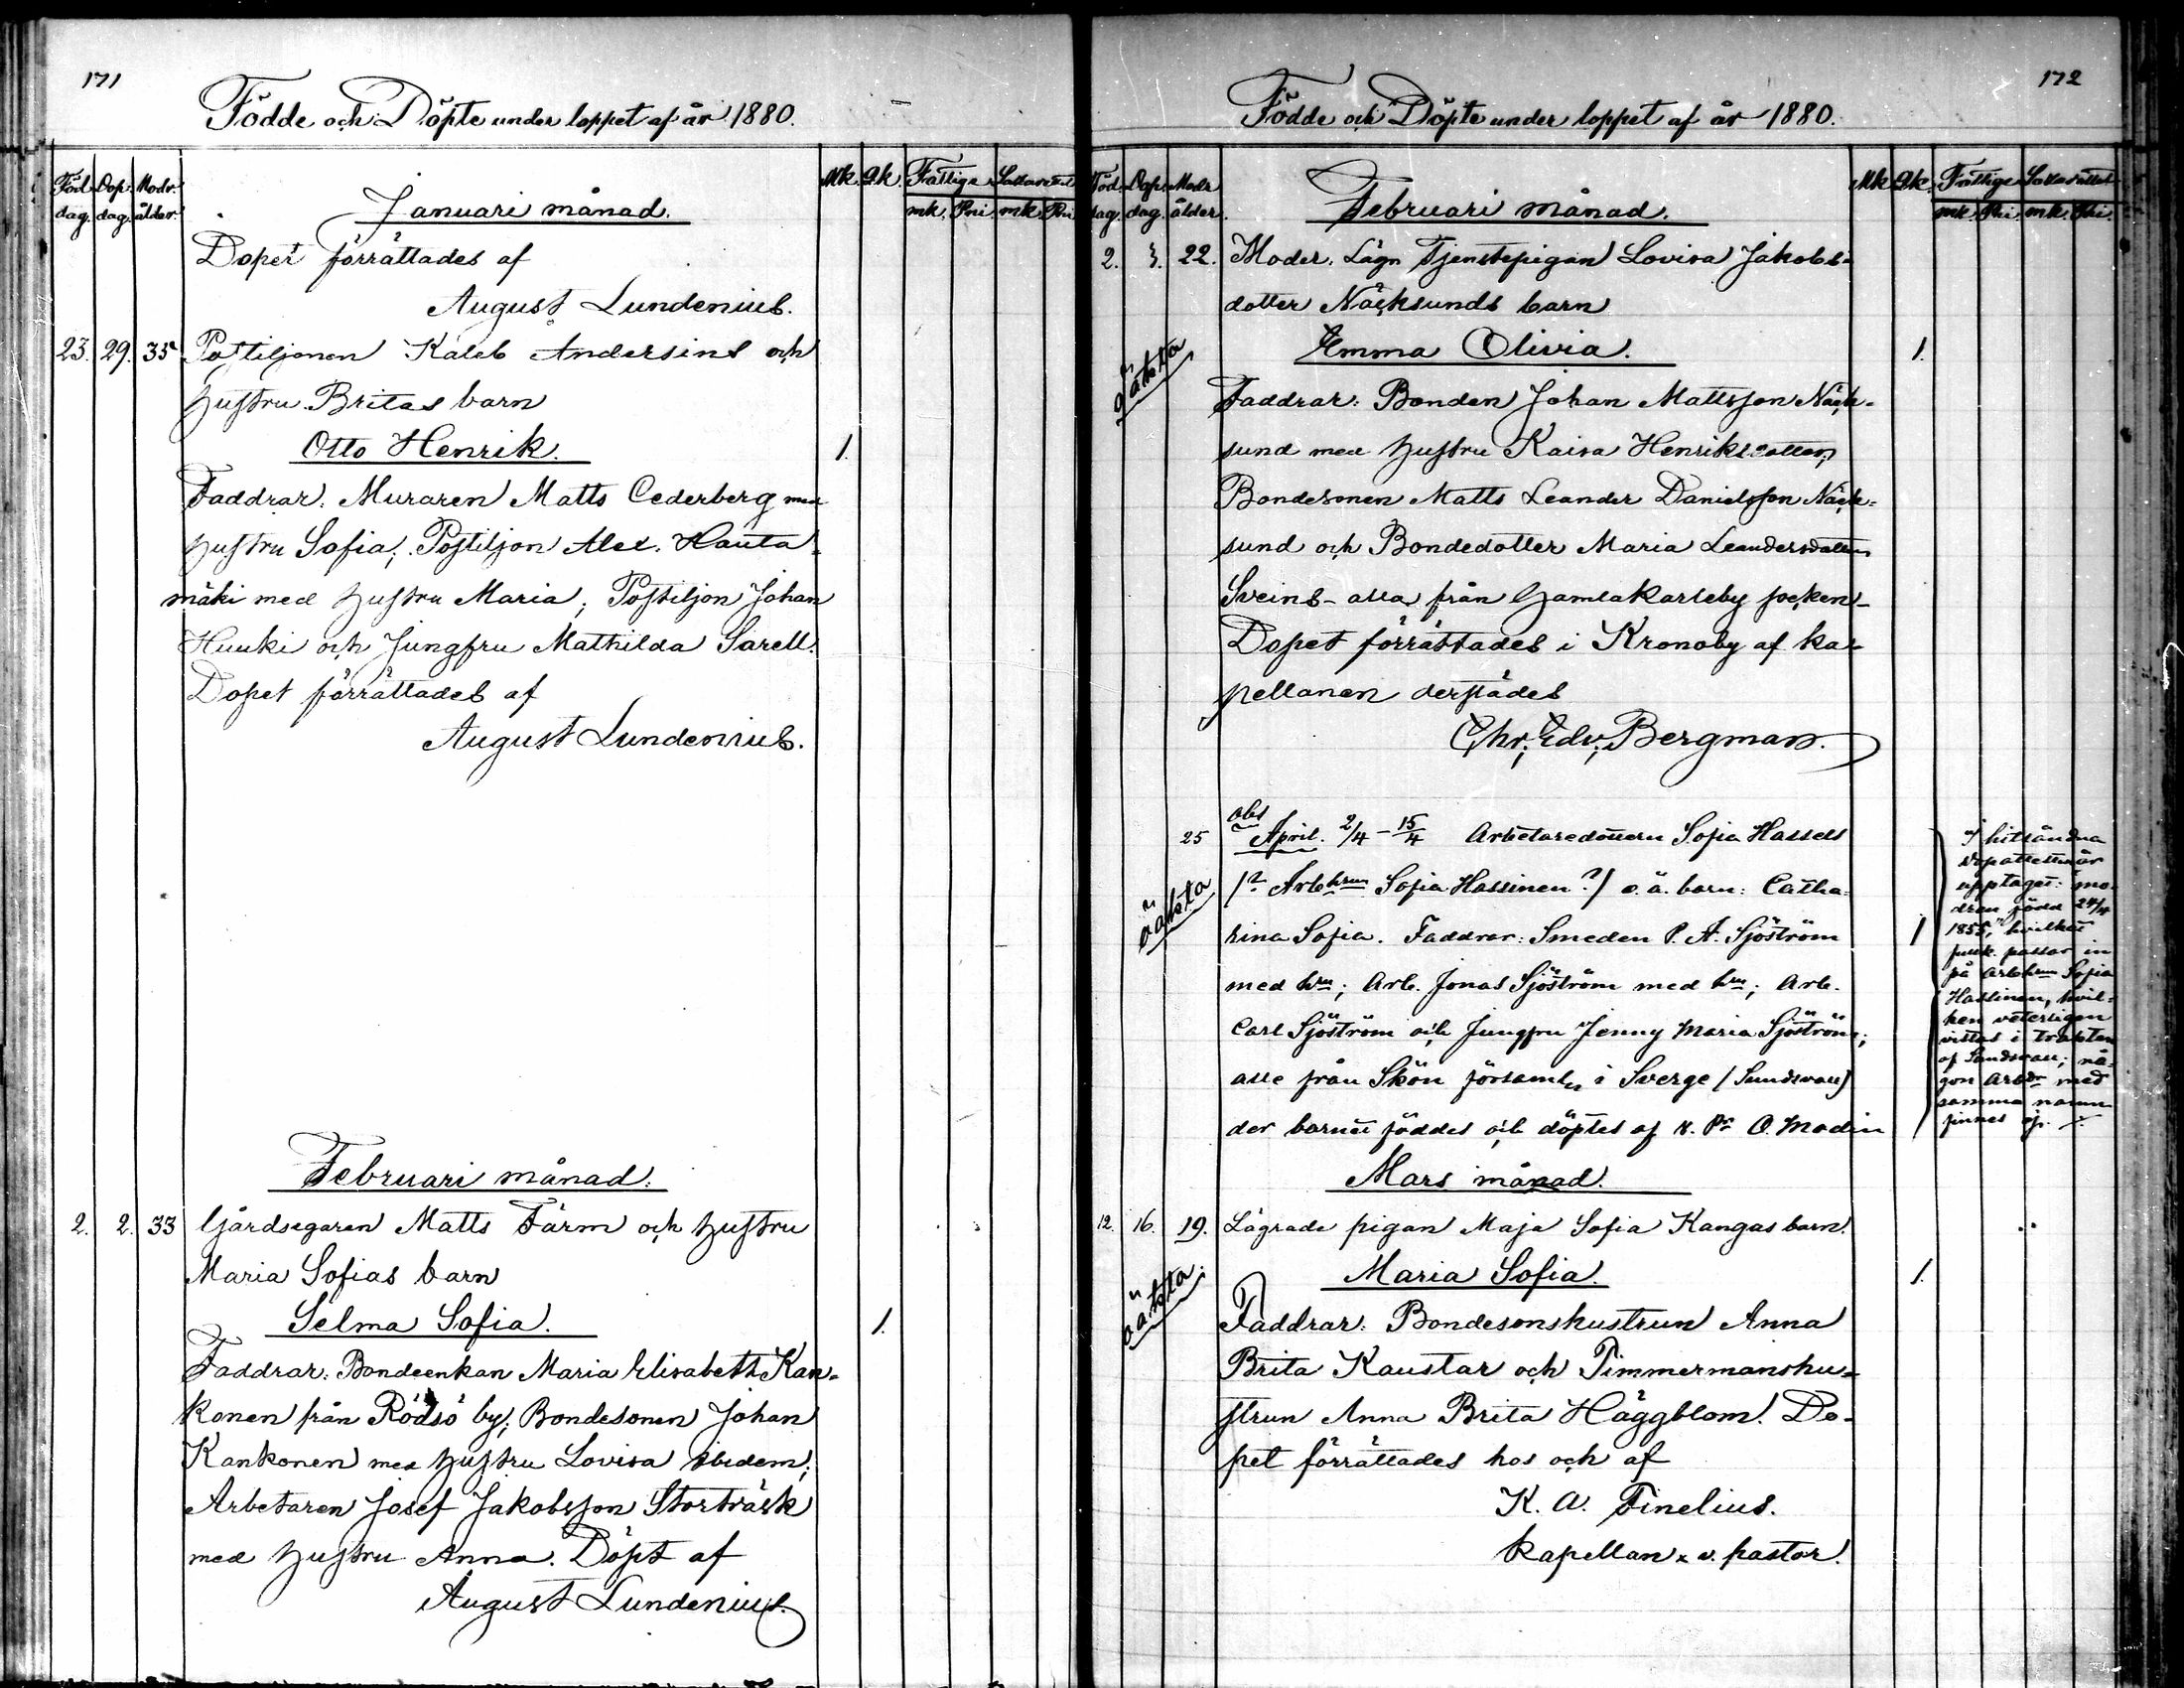 171
Födde och Döpte under loppet af år 1880.
Föd. dag. Dop. dag. Modr. ålder. Mk. Qk. Fattige mk. Pni mk. Pni
Januari månad.
Dopet förrättades af
August Lundenius.
23. 29. 35 Postiljonen Kaleb Andersins och
hustru Britas barn
Otto Henrik. 1.
Faddrar: Muraren Matts Cederberg med
hustru Sofia; Postiljon Alex. Hauta-
mäki med hustru Maria; Postiljon Johan
Huuki och Jungfru Mathilda Sarell.
Dopet förrättades af
August Lundenius.
Februari månad.
2. 2. 33 Gårdsegaren Matts Färm och hustru
Maria Sofias barn
Selma Sofia. 1.
Faddrar: Bondeenkan Maria Elisabeth Kan-
konen från Rödsö by; Bondesonen Johan
Kankonen med hustru Lovisa ibidem;
Arbetaren Josef Jakobsson Storträsk
med hustru Anna. Döpt af
August Lundenius.
172
Födde och Döpte under loppet af år 1880.
Föd. dag. Dop. dag. Modr. ålder. Mk. Qk. Fattige mk. Pni. mk. Pni.
Februari månad.
2. 3. 22. Moder: Lägr. Tjenstepigan Lovisa Jakobs-
dotter Näcksunds barn
oäkta
Emma Olivia. 1.
Faddrar: Bonden Johan Mattsson Näck-
sund med hustru Kaisa Henriksdotter;
Bondesonen Matts Leander Danielsson Näck-
sund och Bondedotter Maria Leandersdotter
Sveins - alla från Gamlakarleby socken -
Dopet förrättades i Kronoby af ka-
pellanen derstädes
Chr. Edv. Bergman.
obs
25 April. 2/4 - 15/4 Arbetaredottern Sofia Hassels
oäkta
(? Arb.hrun Sofia Hassinen ?) o.ä. barn: Catha-
rina Sofia. Faddrar: Smeden P. A. Sjöström 1
med hru; Arb. Jonas Sjöström med hru; Arb.
Carl Sjöström och Jungfru Jenny Maria Sjöström;
alle från Skön församl. i Sverge (Sundsvall)
der barnet föddes och döptes af v. Pr. O. Modin
I hitsändna
dopattesten är
upptaget: "mo-
dren född 24/4
1855," hvilket
passar in
på Arb.hrun Sofia
Hassinen, hvil-
ken veterligen
vistas i trakten
af Sundsvall; nå-
gon Arb.dr med
samma namn
finnes ej.
Mars månad.
12. 16. 19. Lägrade pigan Maja Sofia Kangas barn.
oäkta.
Maria Sofia. 1.
Faddrar: Bondesonshustrun Anna
Brita Kaustar och Timmermanshu-
strun Anna Brita Häggblom. Do-
pet förrättades hos och af
K. A. Finelius.
kapellan & v. pastor.